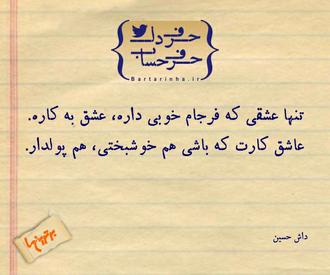 حرف دل
حرف حساب
Bartarinha.ir
تنها عشقی که فرجام خوبی داره، عشق به کاره.
عاشق کارت که باشی هم خوشبختی، هم پولدار.
داش حسین
برترینها